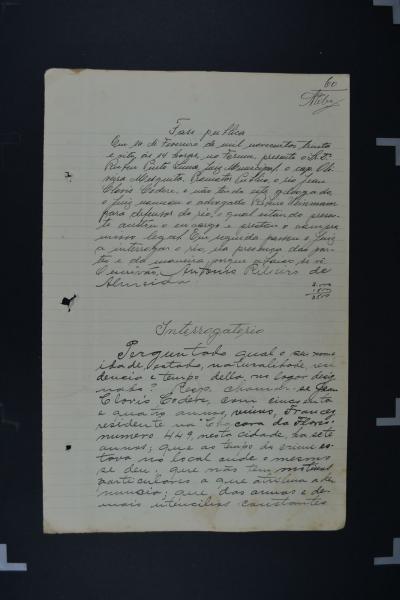 60
Fase publica
Em 10 de Fevereiro de mil novecentos trinta
e oito, ás 14 horas, no Forum, presente o Sr. Dr.
Pinto Luna, Juiz Municipal, o cap.
Mesquita, Promotor Publico, o réo Jean
Clovis Codere, e não tendo este advogado
o juiz nomeou o advogado Heinzmann
para defensor do réo, o qual estando presen-
te acceitou o encargo e prestou o compro-
misso legal. Em seguida passou o Juiz
a interrogar o réo, na presença das par-
tes e da maneira porque abaixo se vê
Escrivão, Antonio Ribeiro de
Almeida.
Interrogatorio
Perguntado qual o seu nome
idade, estado, naturalidade, resi
dencia e tempo della, no lugar desig
nado? Resp. chamar-se Jean
Clovis Codere, com cincoenta
e quatro annos, viuvo, Francez
residente na Chacara da Flores
numero 449, nesta cidade, ha sete
annos; que ao tempo do crime es-
tava no local onde o mesmo
se deu; que não tem motivos
particulares a que attribua a de
nuncia; que das armas e de-
mais utencilios constantes